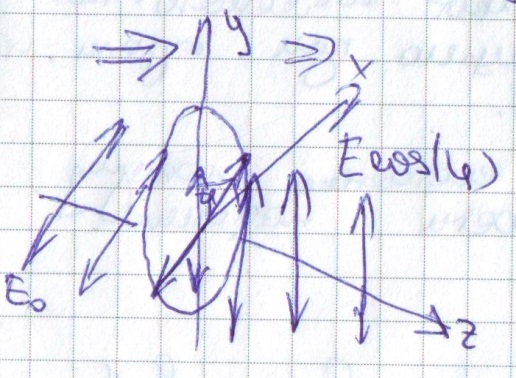 y
x
E cos(φ)
φ
E₀
z